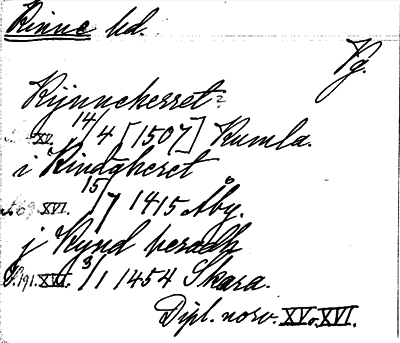 Kinne hd.
Vg.
Kijnnekerret?
XV. 14/4 [1507] Kumla.
i Kindäheret
XVI. 15/7 1415 Åby.
j Kynd heradh
S. 191. XVI. 3/1 1454 Skara.
Dipl. norv. XV o. XVI.